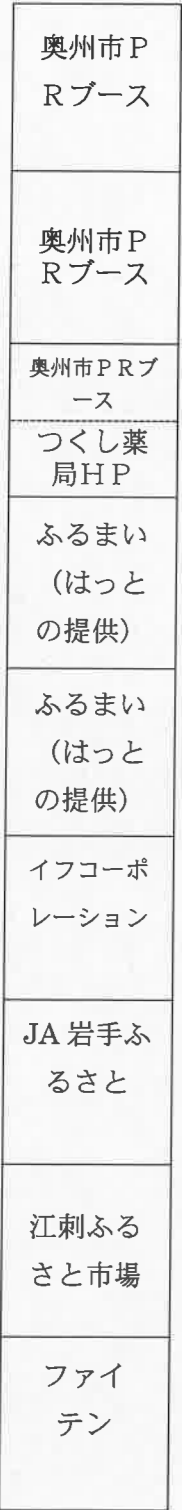 奥州市Ｐ
Ｒブース
奥州市Ｐ
Ｒブース
奥州市ＰＲブ
ース
つくし薬
局ＨＰ
ふるまい
（はっと
の提供）
ふるまい
（はっと
の提供）
イフコーポ
レーション
JA 岩手ふ
るさと
江刺ふる
さと市場
ファイ
テン